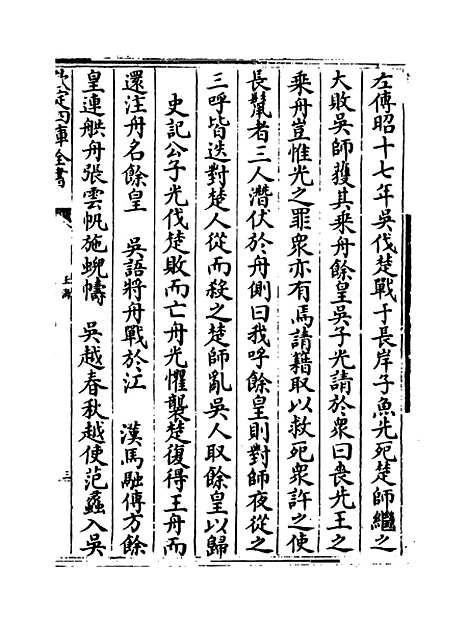 左傳昭十七年吳伐楚戰于長岸子魚先死楚師繼之
大敗吳師獲其乘舟餘皇吳子光請於衆曰喪先王之
乘舟豈惟光之罪衆亦有焉請藉取以救死衆許之使
長鬛者三人潛伏於舟側曰我呼餘皇則對師夜從之
三呼皆迭對楚人從而殺之楚師亂吳人取餘皇以歸
史記公子光伐楚敗而亡舟光懼襲楚復得王舟而
還注舟名餘皇 吳語將舟戰於江 漢馬融傳方餘
皇連舼舟張雲帆施蜺幬 吳越春秋越使范蠡入吳
欽定四庫全書
三